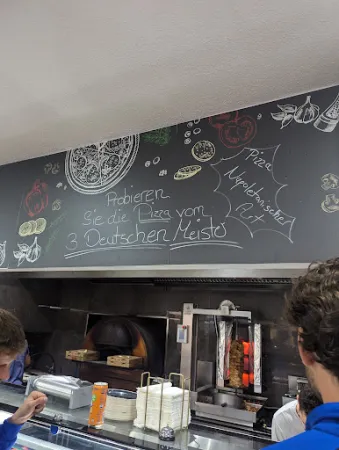 Probieren
Sie die Pizza vom
3 Deutschen Meister
Pizza
Napoletanischer
Art